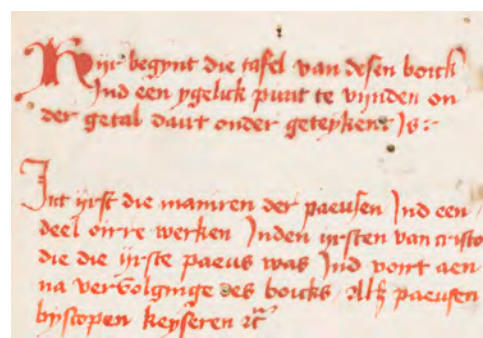 Hijr begynt die tafel van desen boick
Ind een ygelick punt te vijnden on
der getal dair onder geteykent Is :-
Int yrst die maniren der paeusen Ind een
deel oirre werken Inden yrsten van cristo
die die yrste paeus was Ind voirt aen
na vervolginge des boicks Alle paeusen
byscopen keyseren etc